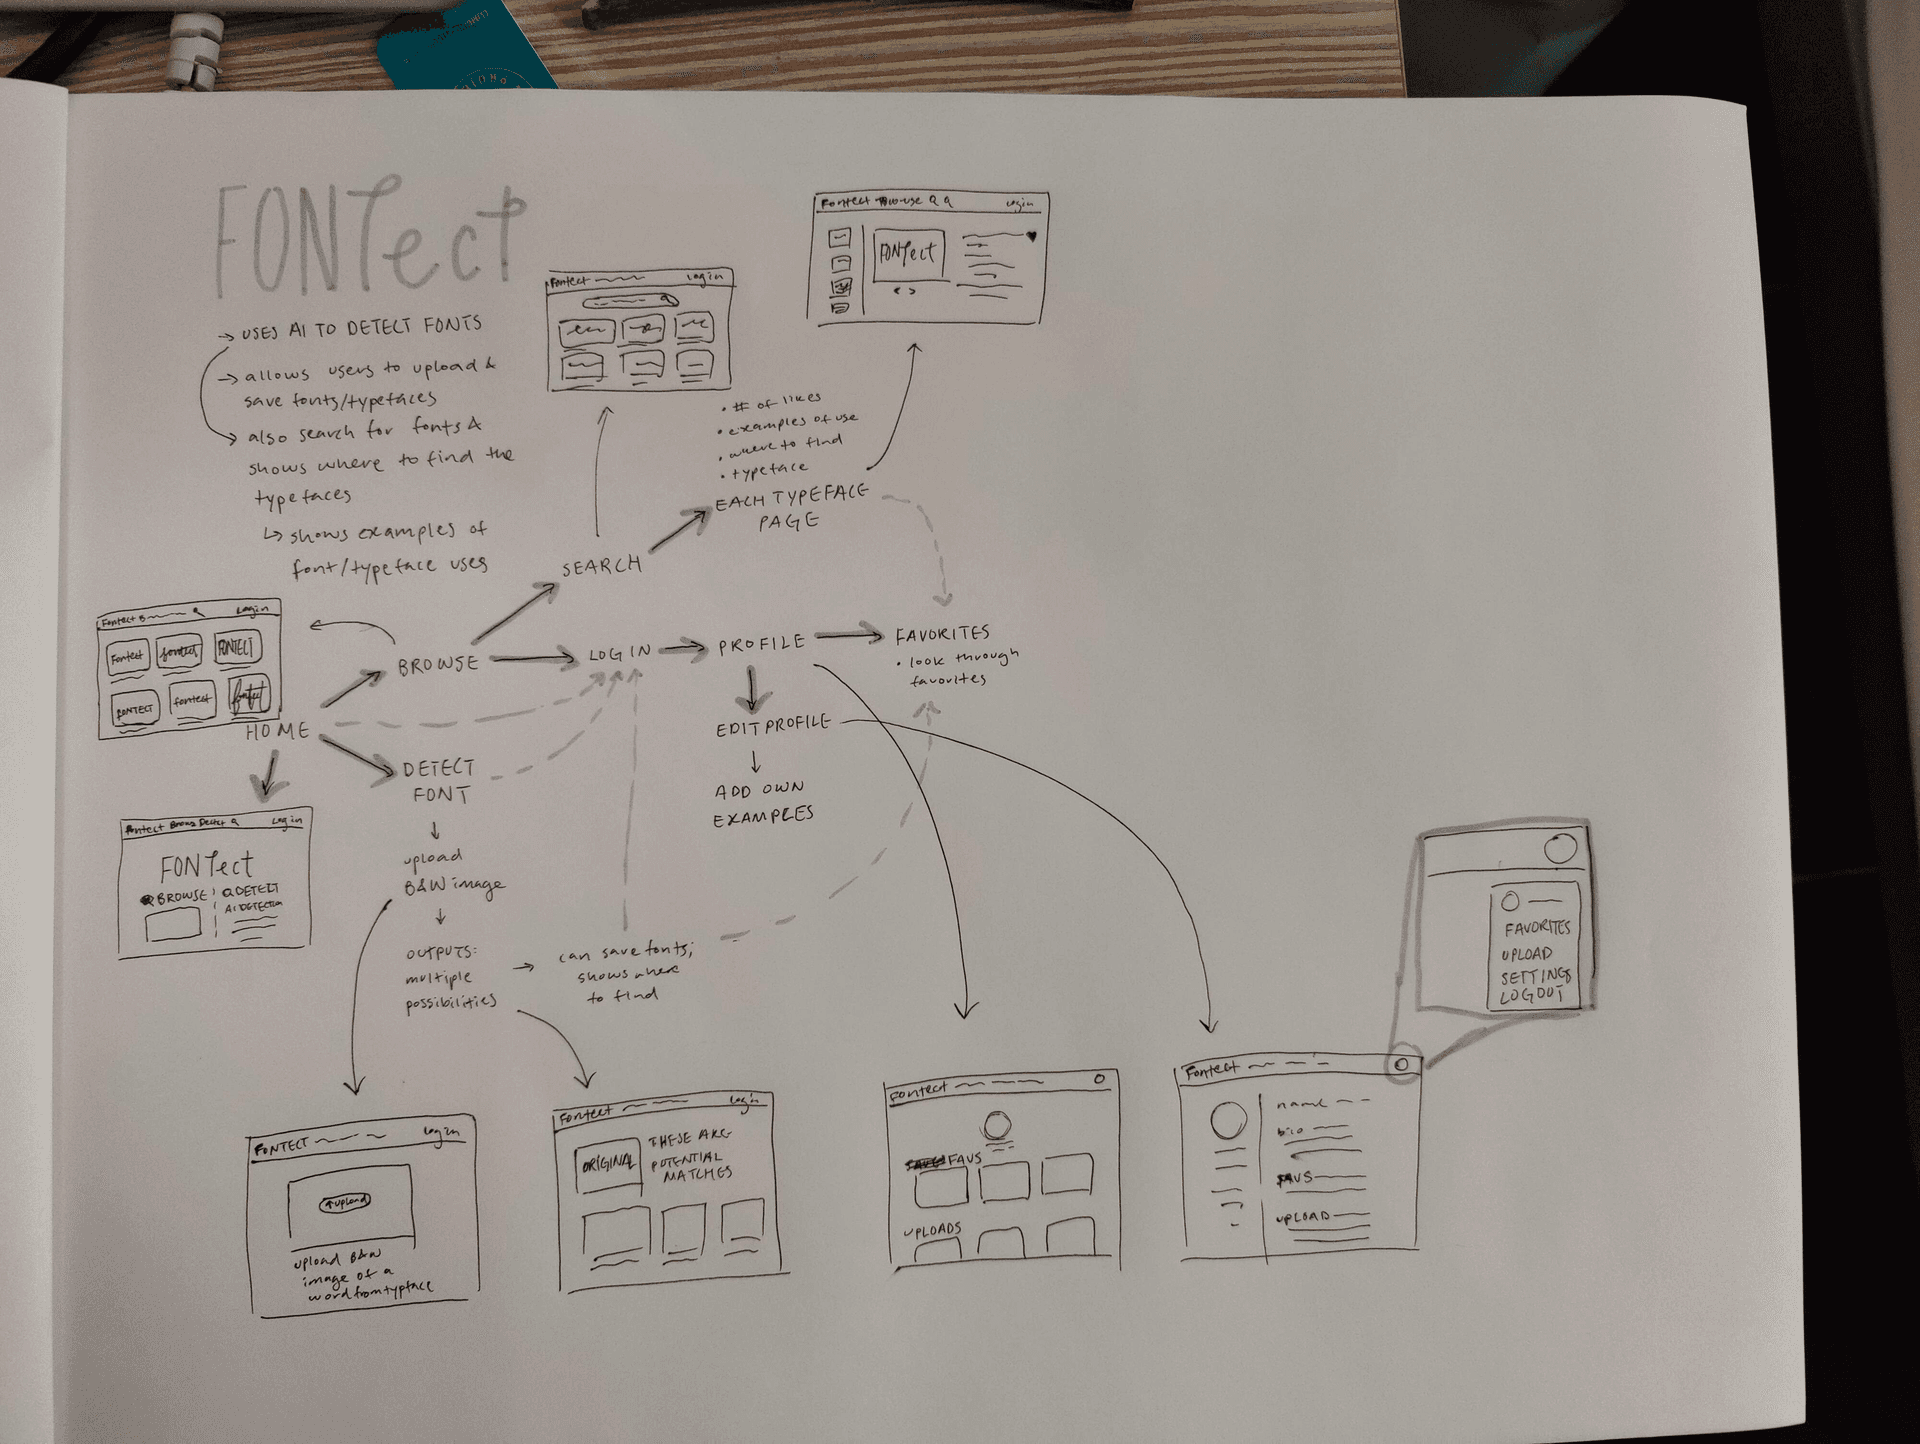 FONTect
→ USES AI TO DETECT FONTS
→ allows users to upload &
save fonts/typefaces
→ also search for fonts &
shows where to find the
typefaces
↳ shows examples of
font/typeface uses
Fontect Login
Fontect Browse Login
FONTect
< >
• # of likes
• examples of use
• where to find
• typeface
EACH TYPEFACE
PAGE
SEARCH
Fontect B Login
Fontect fontect FONTECT
FONTECT fontect fontect
HOME
BROWSE
LOGIN
PROFILE
FAVORITES
• look through
favorites
EDIT PROFILE
↓
ADD OWN
EXAMPLES
DETECT
FONT
↓
upload
B&W image
↓
OUTPUTS:
multiple
possibilities
→ can save fonts;
shows where
to find
Fontect Browse Detect Login
FONTect
BROWSE DETECT
AI DETECTION
FONTECT Login
↑upload
upload B&W
image of a
word from typface
Fontect Login
ORIGINAL
THESE ARE
POTENTIAL
MATCHES
Fontect
FAVS
UPLOADS
Fontect
name
bio
FAVS
UPLOAD
FAVORITES
UPLOAD
SETTINGS
LOGOUT